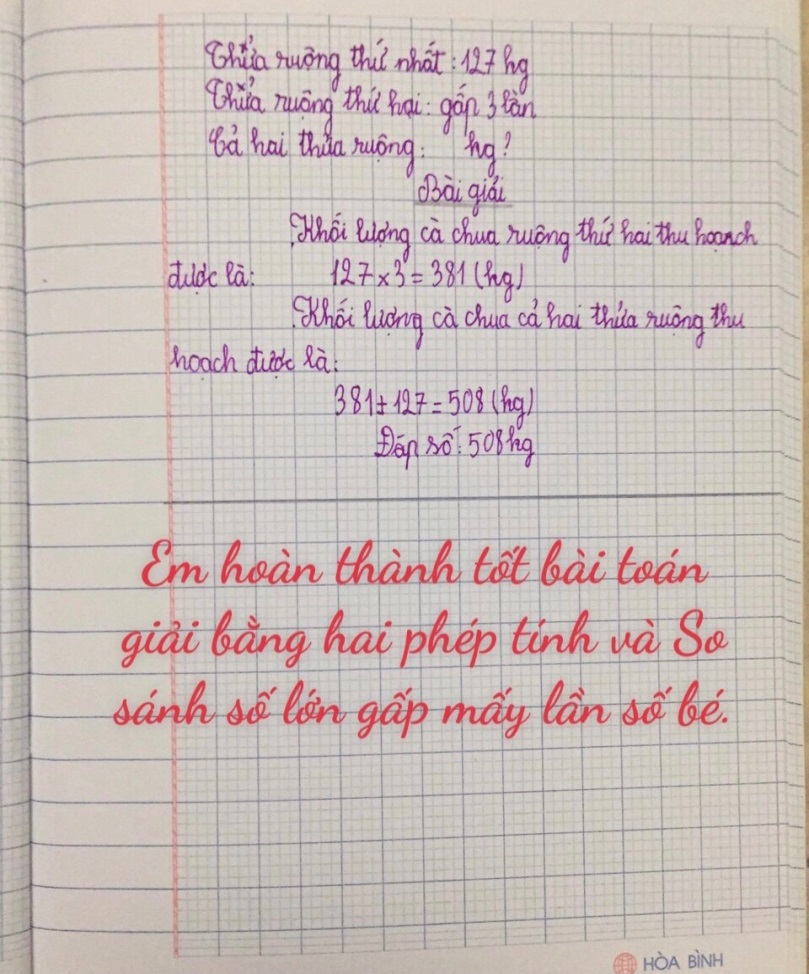 Thửa ruộng thứ nhất: 127 hg
Thửa ruộng thứ hai: gấp 3 lần
Cả hai thửa ruộng: hg?
Bài giải
Khối lượng cà chua ruộng thứ hai thu hoạch
được là: 127 x 3 = 381 (hg)
Khối lượng cà chua cả hai thửa ruộng thu
hoạch được là:
381 + 127 = 508 (hg)
Đáp số: 508 hg
Em hoàn thành tốt bài toán
giải bằng hai phép tính và So
sánh số lớn gấp mấy lần số bé.
HÒA BÌNH